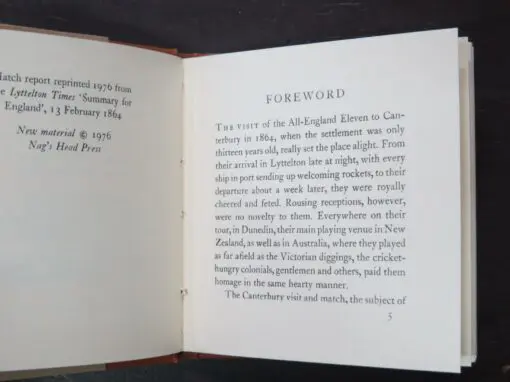 Match report reprinted 1976 from
the Lyttelton Times 'Summary for
England', 13 February 1864
New material © 1976
Nag's Head Press
FOREWORD
THE VISIT of the All-England Eleven to Can-
terbury in 1864, when the settlement was only
thirteen years old, really set the place alight. From
their arrival in Lyttelton late at night, with every
ship in port sending up welcoming rockets, to their
departure about a week later, they were royally
cheered and feted. Rousing receptions, however,
were no novelty to them. Everywhere on their
tour, in Dunedin, their main playing venue in New
Zealand, as well as in Australia, where they played
as far afield as the Victorian diggings, the cricket-
hungry colonials, gentlemen and others, paid them
homage in the same hearty manner.
The Canterbury visit and match, the subject of
5